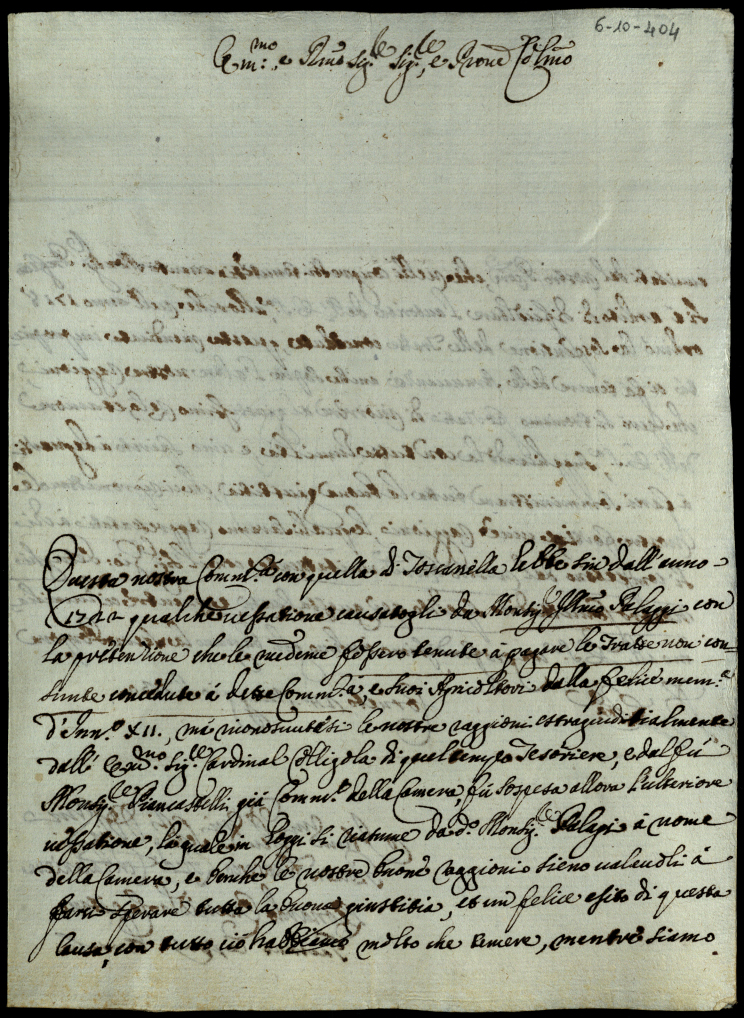 6-10-404
Em.mo e Rmo Sig.le Sig.le, e Prone Colmo
Questa nostra Comm.tà con quella di Toscanella hebbe sin dall'anno
1722 qualche uessatione causatogli da Monsig.le Illmo Palazzi con
la pretentione che le medeme fossero tenute à pagare le Tratte non con-
sunte concedute à dette Comm.tà, e suoi Agricoltori dalla felice mem.a
d'Inn.o XII., mà riconosciutesi le nostre raggioni estragiuditialmente
dall' Sig.le Cardinal Colligola di quel tempo Tesoriere, e dal fù
Monsig.le Piancastelli già Comm.o della Camera, fù sospesa allora l'ulteriore
uessatione, la quale in hoggi si riassume da d.o Monsig.le Palazi à nome
della Camera, e benche le nostre buone raggioni sieno ualeuoli à
farci sperare tutta la buona giustitia, et un felice esito di questa
causa, con tutto ciò habbiamo molto che temere, mentre siamo